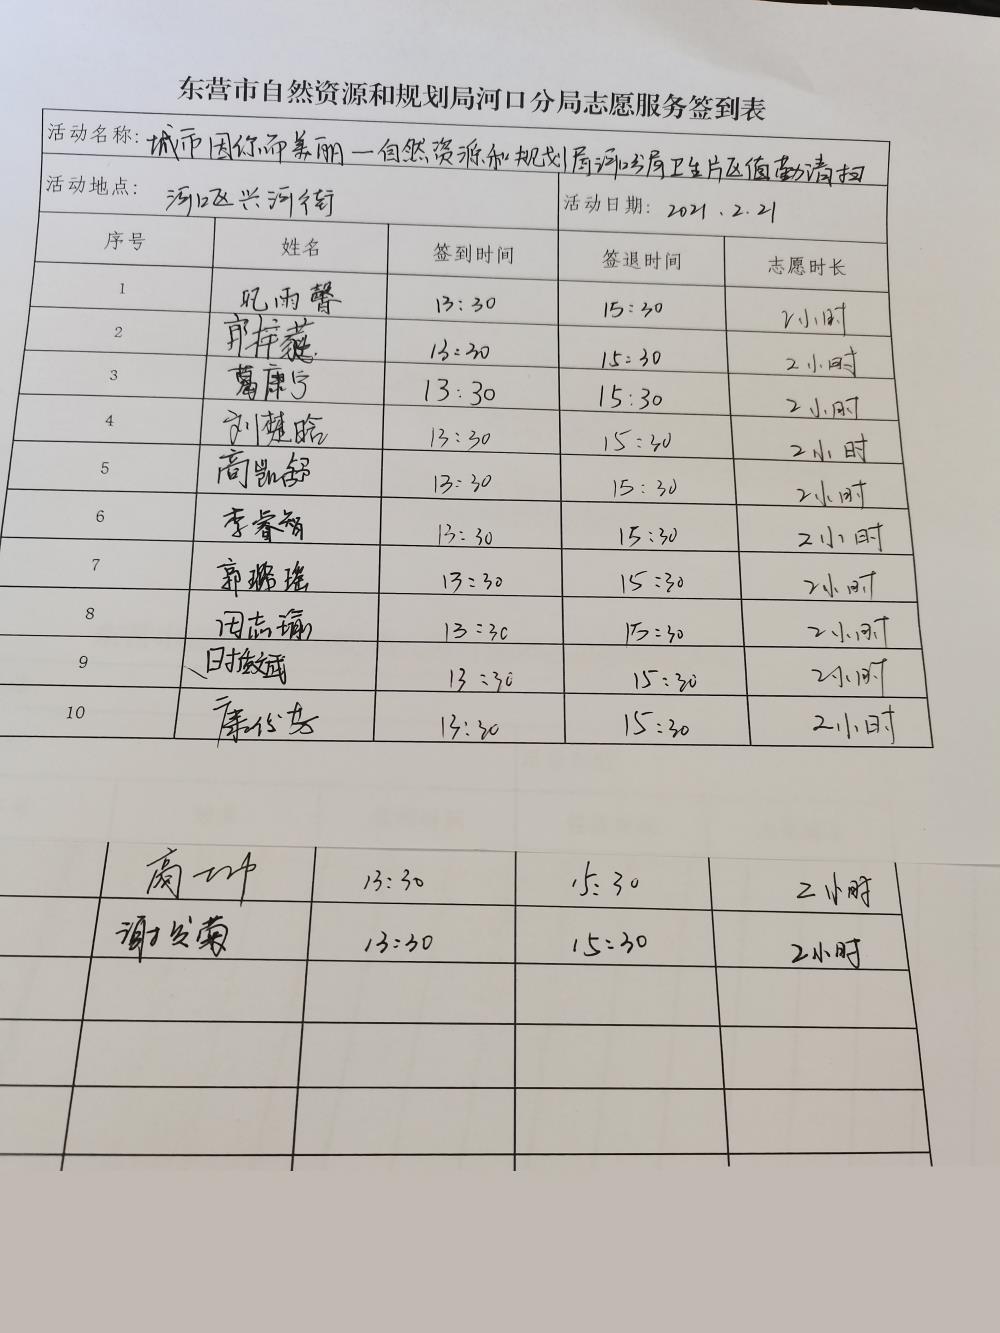 东营市自然资源和规划局河口分局志愿服务签到表
活动名称: 城市因你而美丽—自然资源和规划局河口分局卫生片区值勤清扫
活动地点: 河口区兴河街 活动日期: 2021.2.21
序号 姓名 签到时间 签退时间 志愿时长
1 雨馨 13:30 15:30 2小时
2 郭梓蕤 13:30 15:30 2小时
3 葛康宁 13:30 15:30 2小时
4 刘楚晗 13:30 15:30 2小时
5 高凯舒 13:30 15:30 2小时
6 李睿智 13:30 15:30 2小时
7 郭璐瑶 13:30 15:30 2小时
8 周志瑜 13:30 15:30 2小时
9 13:30 15:30 2小时
10 13:30 15:30 2小时
高 13:30 15:30 2小时
谢 菊 13:30 15:30 2小时